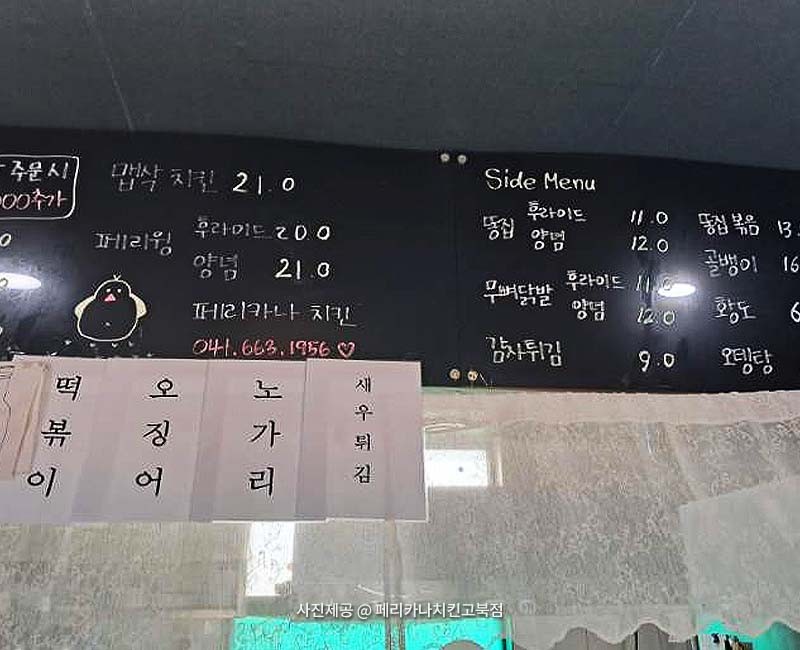 주문 시
000추가
맵삭 치킨 21.0
페리윙 후라이드 20.0
양념 21.0
페리카나 치킨
041.663.1956
Side Menu
똥집 후라이드 11.0
양념 12.0
무뼈닭발 후라이드 11.0
양념 12.0
감자튀김 9.0
똥집 볶음 13.
골뱅이 16
황도 6
오뎅탕
떡볶이
오징어
노가리
새우튀김
사진제공 @ 페리카나치킨고북점